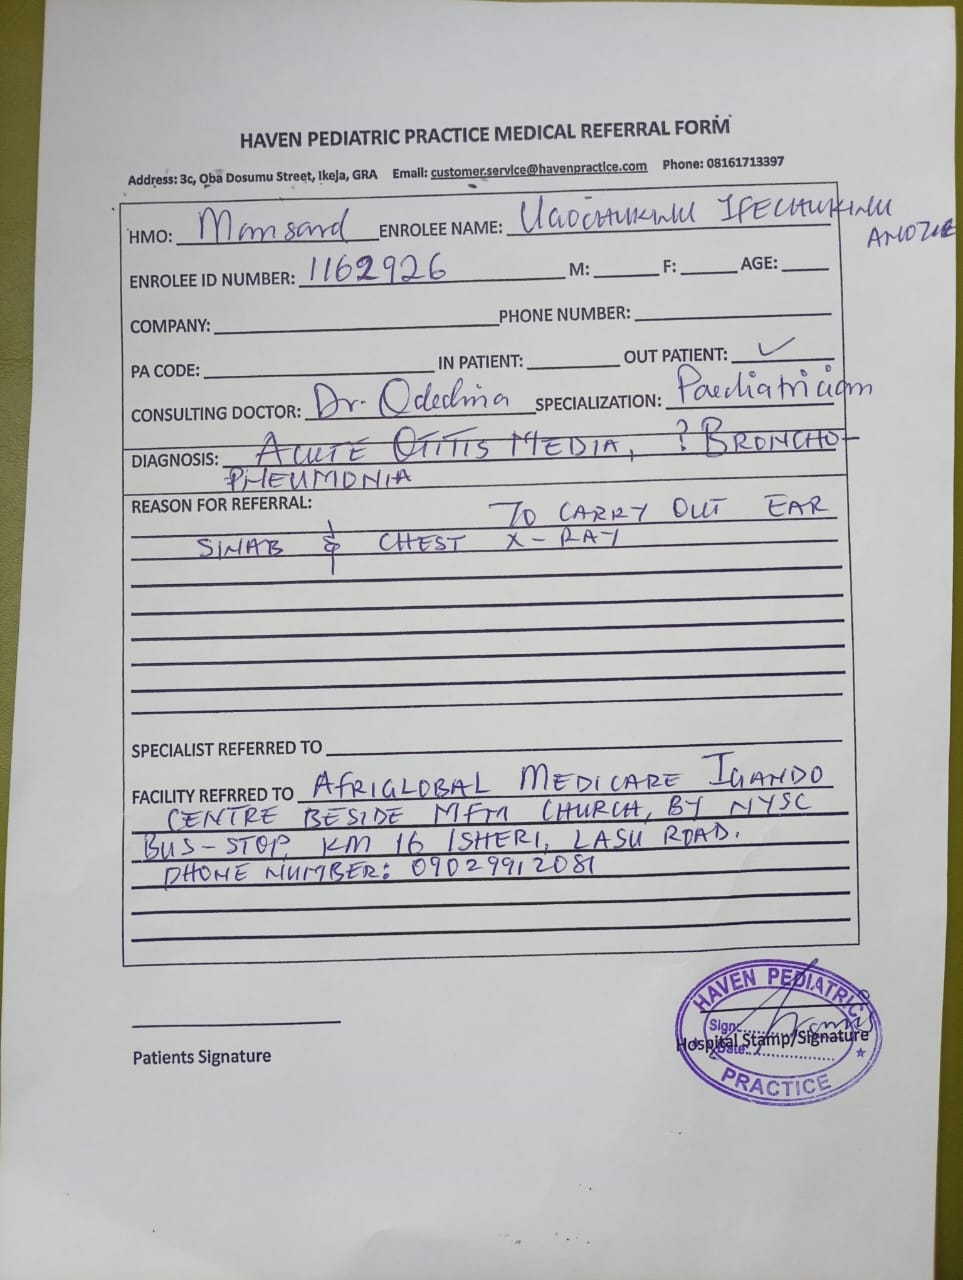 HAVEN PEDIATRIC PRACTICE MEDICAL REFERRAL FORM
Address: 3c, Oba Dosumu Street, Ikeja, GRA Email: customer.service@havenpractice.com Phone: 08161713397
HMO: Mansard ENROLEE NAME: UGOCHUKWU IFECHUKWU
ANOZIE
ENROLEE ID NUMBER: 1162926 M: F: AGE:
COMPANY: PHONE NUMBER:
PA CODE: IN PATIENT: OUT PATIENT: ✓
CONSULTING DOCTOR: Dr. Odedina SPECIALIZATION: Paediatrician
DIAGNOSIS: ACUTE OTITIS MEDIA, ? BRONCHO-
PNEUMONIA
REASON FOR REFERRAL: TO CARRY OUT EAR
SWAB & CHEST X-RAY
SPECIALIST REFERRED TO
FACILITY REFRRED TO AFRIGLOBAL MEDICARE IGANDO
CENTRE BESIDE MFM CHURCH, BY NYSC
BUS-STOP, KM 16 ISHERI, LASU ROAD.
PHONE NUMBER: 09029912081
HAVEN PEDIATRIC
Sign:
Hospital Stamp/Signature
Date:
PRACTICE
Patients Signature